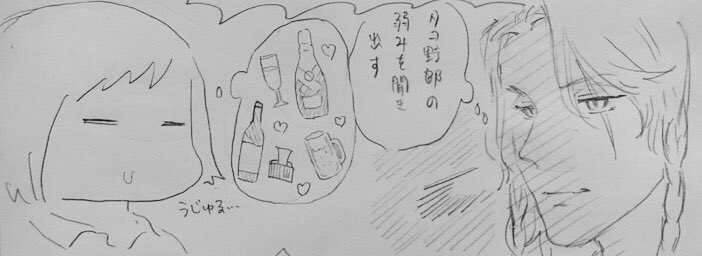 タコ野郎の
弱みを聞き
出す
うじゅる…